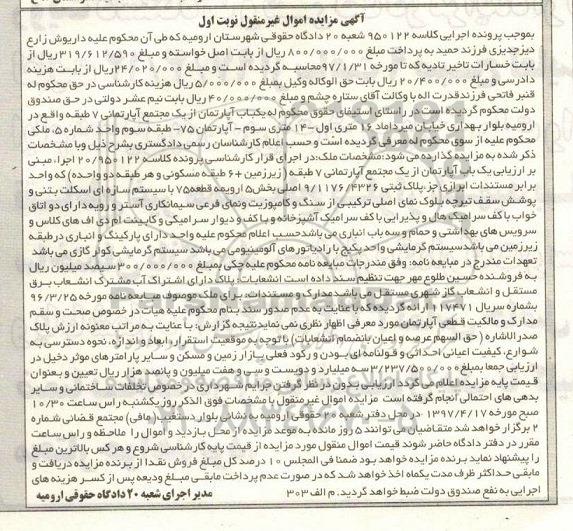 آگهی مزایده اموال غیرمنقول نوبت اول
بموجب پرونده اجرایی کلاسه ۹۵۰۱۲۲ شعبه ۲۰ دادگاه حقوقی شهرستان ارومیه که طی آن محکوم علیه داریوش زارع
دیزجدیزی فرزند حمید به پرداخت مبلغ ۸۰۰/۰۰۰/۰۰۰ ریال از بابت اصل خواسته و مبلغ ۳۱۹/۶۱۲/۵۹۰ ریال از
بابت خسارات تاخیر تادیه که تا مورخه ۹۷/۱/۳۱ محاسبه گردیده است و مبلغ ۲۴/۰۲۰/۰۰۰ ریال از بابت هزینه
دادرسی و مبلغ ۲۰/۴۰۰/۰۰۰ ریال بابت حق الوکاله وکیل بمبلغ ۵/۰۰۰/۰۰۰ ریال هزینه کارشناسی در حق محکوم له
قنبر فاتحی فرزند قدرت اله با وکالت آقای ستاره چشم و مبلغ ۴۰/۰۰۰/۰۰۰ ریال بابت نیم عشر دولتی در حق صندوق
دولت محکوم گردیده است در راستای استیفای حقوق محکوم له یکباب آپارتمان از یک مجتمع آپارتمانی ۷ طبقه واقع در
ارومیه بلوار بهداری خیابان میرداماد ۱۶ متری اول-۱۴ متری سوم - آپارتمان ۷۵- طبقه سوم واحد شماره ۵، ملکی
محکوم علیه از سوی محکوم له معرفی گردیده است و حسب اعلام کارشناسان رسمی دادگستری بشرح ذیل وبا مشخصات
ذکر شده به مزایده گذارده می شود: مشخصات ملک: در اجرای قرار کارشناسی پرونده کلاسه ۲۰/۹۵۰۱۲۲ اجرا، مبنی
بر ارزیابی یک باب آپارتمان از یک مجتمع آپارتمانی ۷ طبقه (زیرزمین +۶ طبقه مسکونی و هر طبقه دو واحد) که واحد
برابر مستندات ابرازی جز پلاک ثبتی ۹/۱۱۷۶/۴۳۲۶ اصلی بخش ۵ ارومیه قطعه ۷۵ با سیستم سازه ای اسکلت بتنی و
پوشش سقف تیرچه بلوک نمای اصلی ترکیبی از سنگ و کامپوزیت ونمای فرعی سیمانکاری آستر و رویه دارای دو اتاق
خواب با کف سرامیک هال و پذیرایی با کف سرامیک آشپزخانه و با کف و دیوار سرامیکی و کابینت ام دی اف های کلاس و
سرویس های بهداشتی و حمام و سه باب انباری می باشد حسب اعلام محکوم علیه واحد دارای پارکینگ و انباری در طبقه
زیرزمین می باشد سیستم گرمایشی واحد پکیج با رادیاتورهای آلومینیومی می باشد سیستم گرمایشی کولر گازی می باشد
تعهدات مندرج در مبایعه نامه: وفق مندرجات مبایعه نامه محکوم علیه چکی بمبلغ ۳۰۰/۰۰۰/۰۰۰ سیصد میلیون ریال
به فروشنده حسین طلوع مهر جهت تنظیم سند داده است انشعابات: پلاک دارای اشتراک آب مشترک انشعاب برق
مستقل و انشعاب گاز شهری مستقل می باشد مدارک و مستندات: برای ملک موصوف مبایعه نامه مورخه ۹۶/۳/۲۵
بشماره سریال ۱۱۷۴۷۱ ارائه گردیده که با عنایت به عدم صدور سند بنام محکوم علیه هیات در خصوص صحت و سقم
مدارک و مالکیت قطعی آپارتمان مورد معرفی اظهار نظری نمی نماید نتیجه گزارش: با عنایت به مراتب معنونه ارزش پلاک
صدر الاشاره (حق السهم عرصه و اعیان بانضمام انشعابات) با توجه به موقعیت استقرار، ابعاد و اندازه، نحوه دسترسی به
شوارع، کیفیت اعیانی احداثی و قولنامه ای بودن و رکود فعلی بازار زمین و مسکن و سایر پارامترهای موثر دخیل در
ارزیابی جمعا بمبلغ ۳/۲۳۷/۵۰۰/۰۰۰ سه میلیارد و دویست و سی و هفت میلیون و پانصد هزار ریال تعیین و بعنوان
قیمت پایه مزایده اعلام می گردد ارزیابی بدون در نظر گرفتن جرایم شهرداری در خصوص تخلفات ساختمانی و سایر
بدهی های احتمالی انجام گرفته است. مزایده اموال غیر منقول با مشخصات فوق الذکر روز یکشنبه راس ساعت ۱۰/۳۰
صبح مورخه ۱۳۹۷/۴/۱۷ در محل دفتر شعبه ۲۰ حقوقی ارومیه به نشانی بلوار دستغیب (مافی) مجتمع قضائی شماره
۲ برگزار خواهد شد متقاضیان می توانند ۵ روز مانده به موعد مزایده از محل بازدید و اموال را ملاحظه و راس ساعت
مقرر در دفتر دادگاه حاضر شوند قیمت اموال منقول مورد مزایده از قیمت پایه کارشناسی شروع و هر کس بالاترین مبلغ
را پیشنهاد نماید برنده مزایده خواهد بود ضمنا فی المجلس ۱۰ درصد کل مبلغ فروش نقدا از برنده مزایده دریافت و
مابقی حداکثر ظرف مدت یکماه اخذ خواهد شد که در صورت عدم پرداخت مابقی مبلغ ودیعه پس از کسر هزینه های
اجرایی به نفع صندوق دولت ضبط خواهد گردید. م الف ۳۰۳ مدیر اجرای شعبه ۲۰ دادگاه حقوقی ارومیه